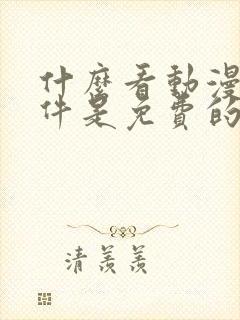 什麼看動漫
件是免費的
清羨羨